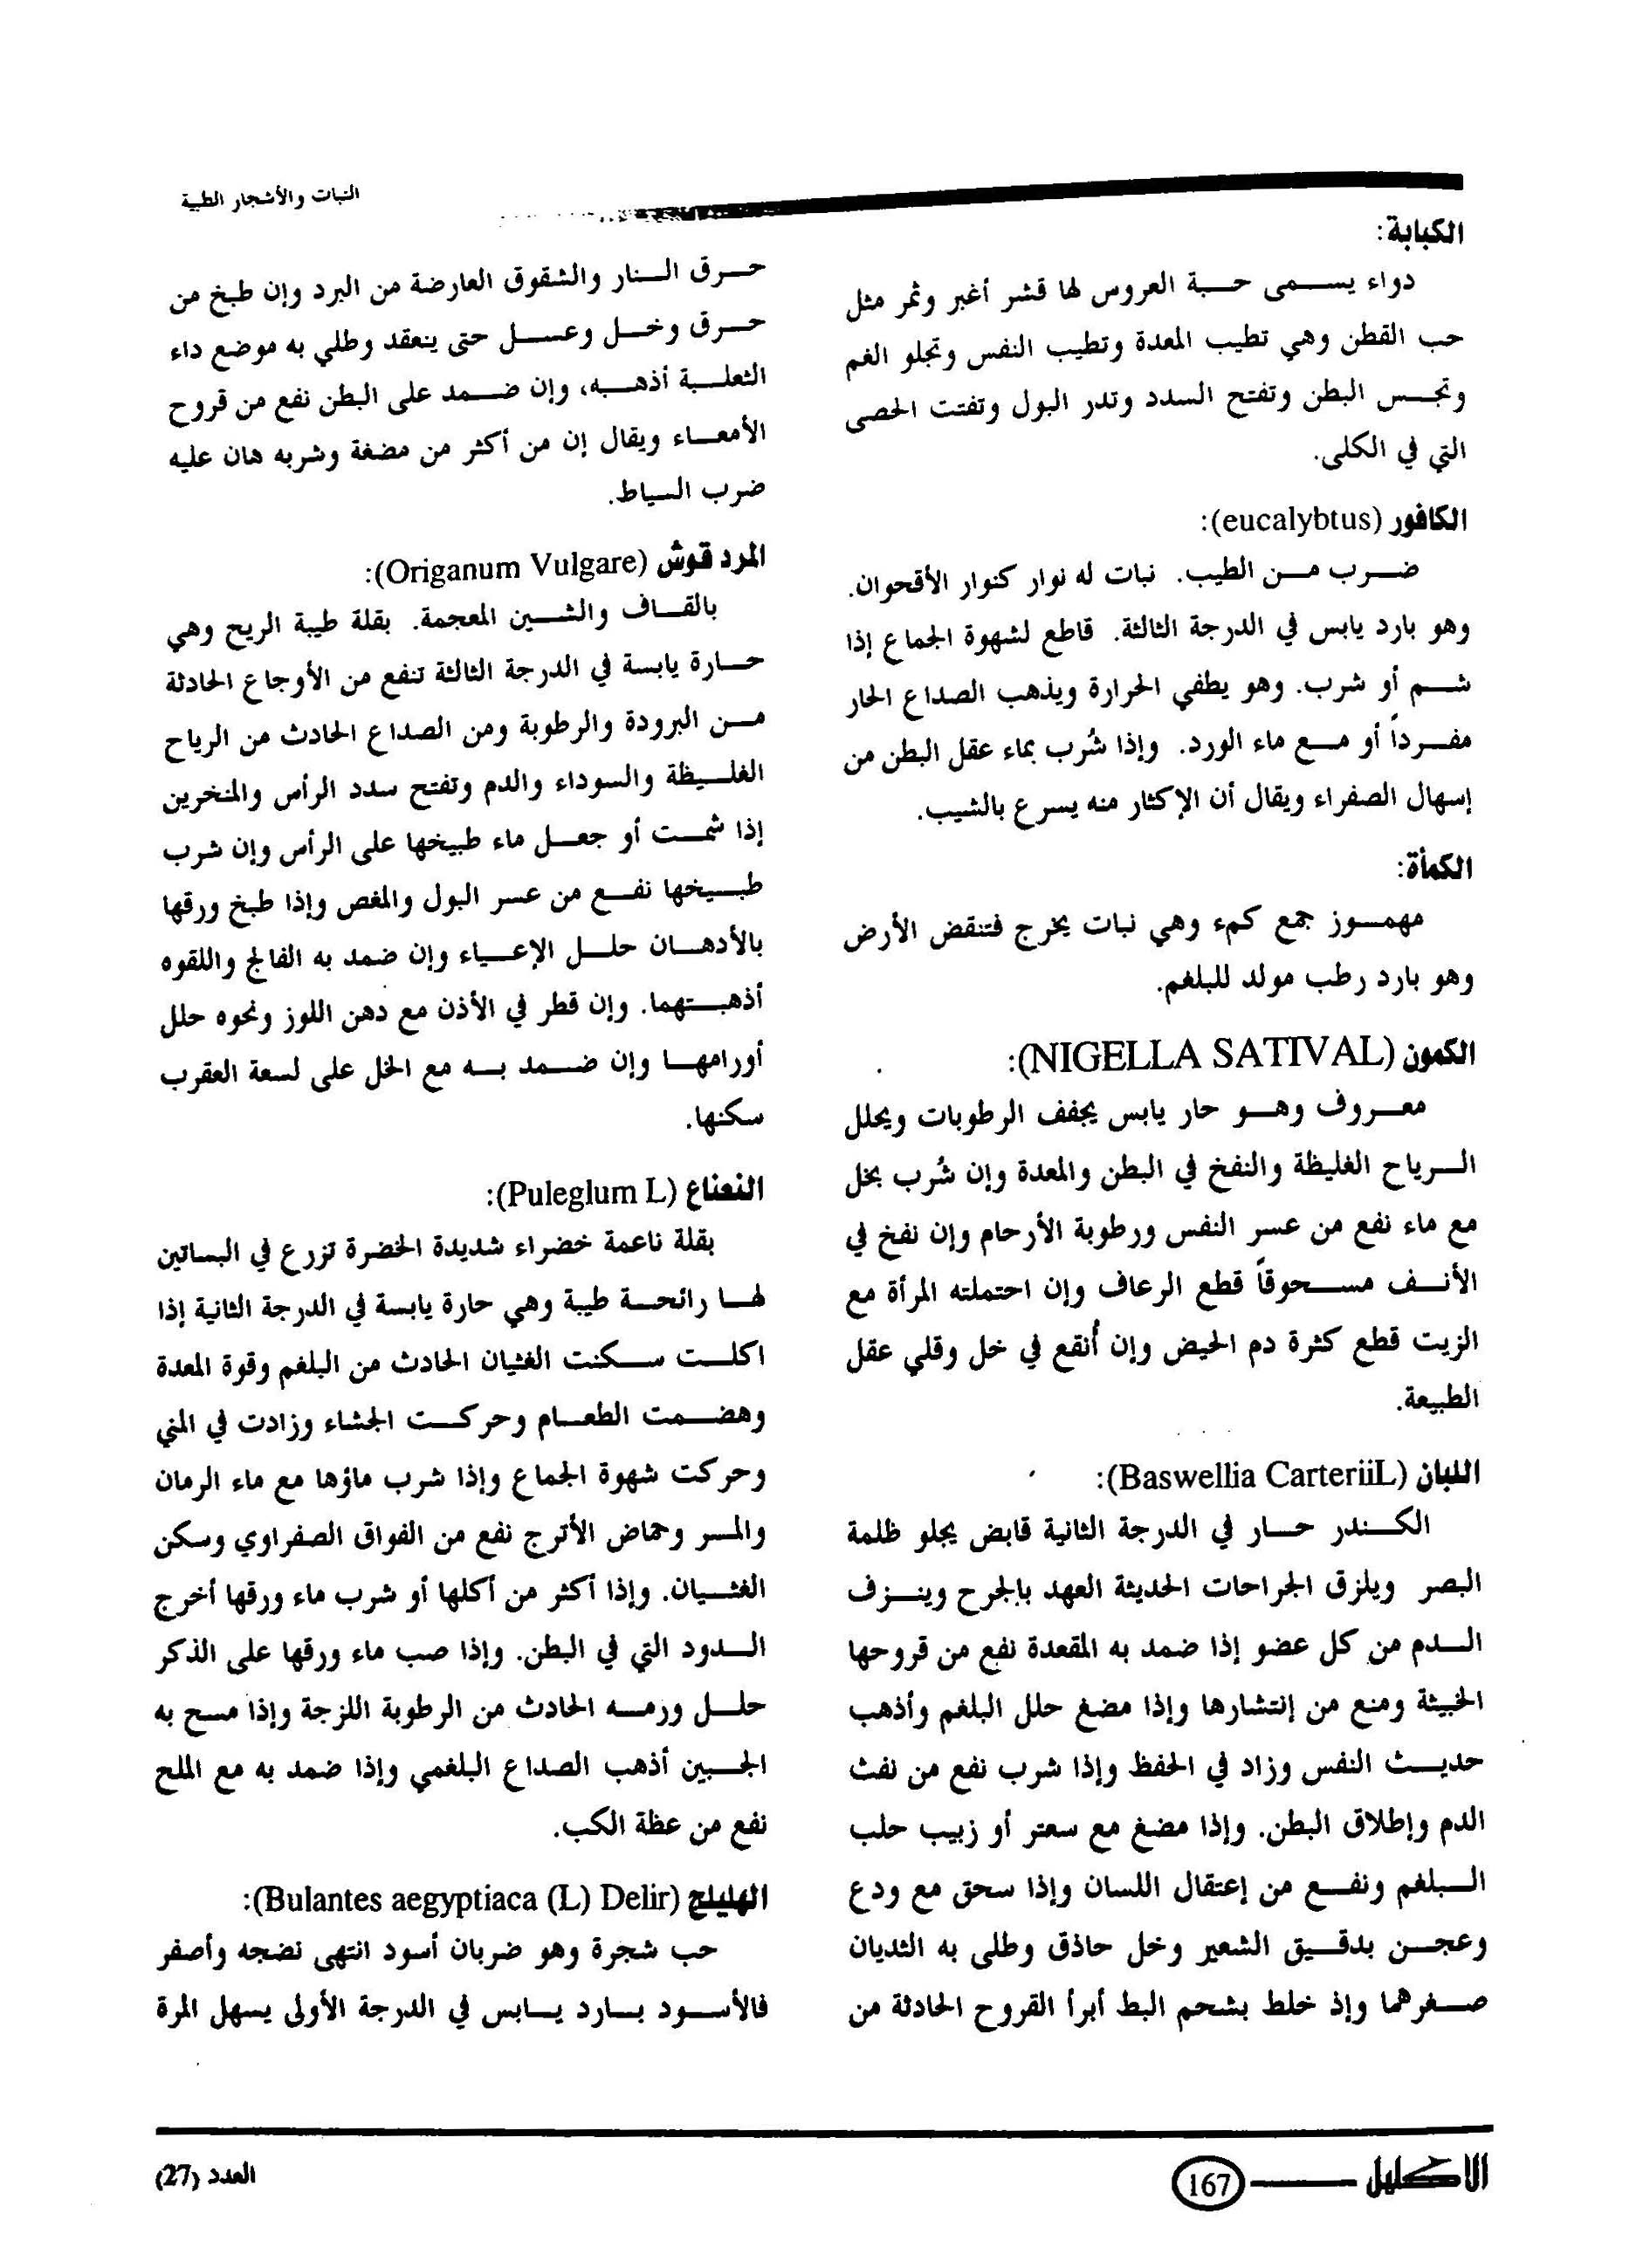 النبات والأشجار الطبية
الكبابة:
دواء يسمى حبة العروس لها قشر أغبر وثمر مثل
حب القطن وهي تطيب المعدة وتطيب النفس وتجلو الغم
وتجس البطن وتفتح السدد وتدر البول وتفتت الحصى
التي في الكلى.
الكافور (eucalybtus):
ضرب من الطيب. نبات له نوار كنوار الأقحوان.
وهو بارد يابس في الدرجة الثالثة. قاطع لشهوة الجماع إذا
شم أو شرب. وهو يطفي الحرارة ويذهب الصداع الحار
مفرداً أو مع ماء الورد. وإذا شُرب بماء عقل البطن من
إسهال الصفراء ويقال أن الإكثار منه يسرع بالشيب.
الكمأة:
مهموز جمع كمء وهي نبات يخرج فتنقض الأرض
وهو بارد رطب مولد للبلغم.
الكمون (NIGELLA SATIVAL):
معروف وهو حار يابس يجفف الرطوبات ويحلل
الرياح الغليظة والنفخ في البطن والمعدة وإن شُرب بخل
مع ماء نفع من عسر النفس ورطوبة الأرحام وإن نفخ في
الأنف مسحوقاً قطع الرعاف وإن احتملته المرأة مع
الزيت قطع كثرة دم الحيض وإن أُنقع في خل وقلي عقل
الطبيعة.
اللبان (Baswellia CarteriiL):
الكندر حار في الدرجة الثانية قابض يجلو ظلمة
البصر ويلزق الجراحات الحديثة العهد بالجرح وينزف
الدم من كل عضو إذا ضمد به المقعدة نفع من قروحها
الخبيثة ومنع من إنتشارها وإذا مضغ حلل البلغم وأذهب
حديث النفس وزاد في الحفظ وإذا شرب نفع من نفث
الدم وإطلاق البطن. وإذا مضغ مع سعتر أو زبيب حلب
البلغم ونفع من إعتقال اللسان وإذا سحق مع ودع
وعجن بدقيق الشعير وخل حاذق وطلى به الثديان
صغرهما وإذ خلط بشحم البط أبرأ القروح الحادثة من
حرق النار والشقوق العارضة من البرد وإن طبخ من
حرق وخل وعسل حتى ينعقد وطلي به موضع داء
الثعلبة أذهبه، وإن ضمد على البطن نفع من قروح
الأمعاء ويقال إن من أكثر من مضغة وشربه هان عليه
ضرب السياط.
المرد قوش (Origanum Vulgare):
بالقاف والشين المعجمة. بقلة طيبة الريح وهي
حارة يابسة في الدرجة الثالثة تنفع من الأوجاع الحادثة
من البرودة والرطوبة ومن الصداع الحادث من الرياح
الغليظة والسوداء والدم وتفتح سدد الرأس والمنخرين
إذا شمت أو جعل ماء طبيخها على الرأس وإن شرب
طبيخها نفع من عسر البول والمغص وإذا طبخ ورقها
بالأدهان حلل الإعياء وإن ضمد به الفالج واللقوه
أذهبتهما. وإن قطر في الأذن مع دهن اللوز ونحوه حلل
أورامها وإن ضمد به مع الخل على لسعة العقرب
سكنها.
النعناع (Puleglum L):
بقلة ناعمة خضراء شديدة الخضرة تزرع في البساتين
لها رائحة طيبة وهي حارة يابسة في الدرجة الثانية إذا
اكلت سكنت الغثيان الحادث من البلغم وقوة المعدة
وهضمت الطعام وحركت الجشاء وزادت في المني
وحركت شهوة الجماع وإذا شرب ماؤها مع ماء الرمان
والمر وحماض الأترج نفع من الفواق الصفراوي وسكن
الغثيان. وإذا أكثر من أكلها أو شرب ماء ورقها أخرج
الدود التي في البطن. وإذا صب ماء ورقها على الذكر
حلل ورمه الحادث من الرطوبة اللزجة وإذا مسح به
الجبين أذهب الصداع البلغمي وإذا ضمد به مع الملح
نفع من عظة الكب.
الهليلج (Bulantes aegyptiaca (L) Delir):
حب شجرة وهو ضربان أسود انتهى نضجه وأصفر
فالأسود بارد يابس في الدرجة الأولى يسهل المرة
الاكليل 167
العدد (27)